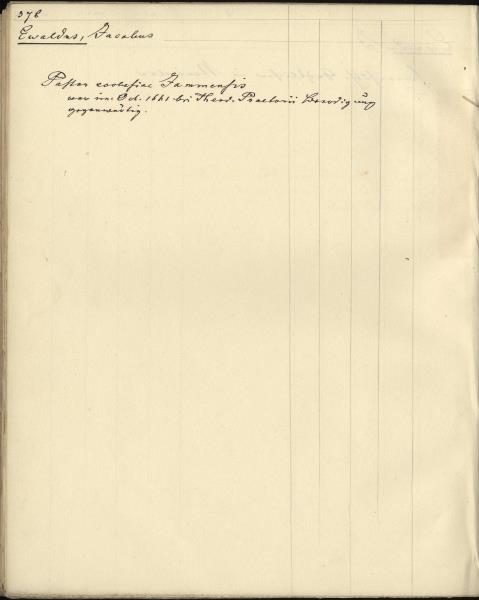 378
Ewaldus, Jacobus
Pastor ecclesiae Jammensis
war im Oct. 1661 bei Theod. Praetorii Beerdigung
gegenwärtig.